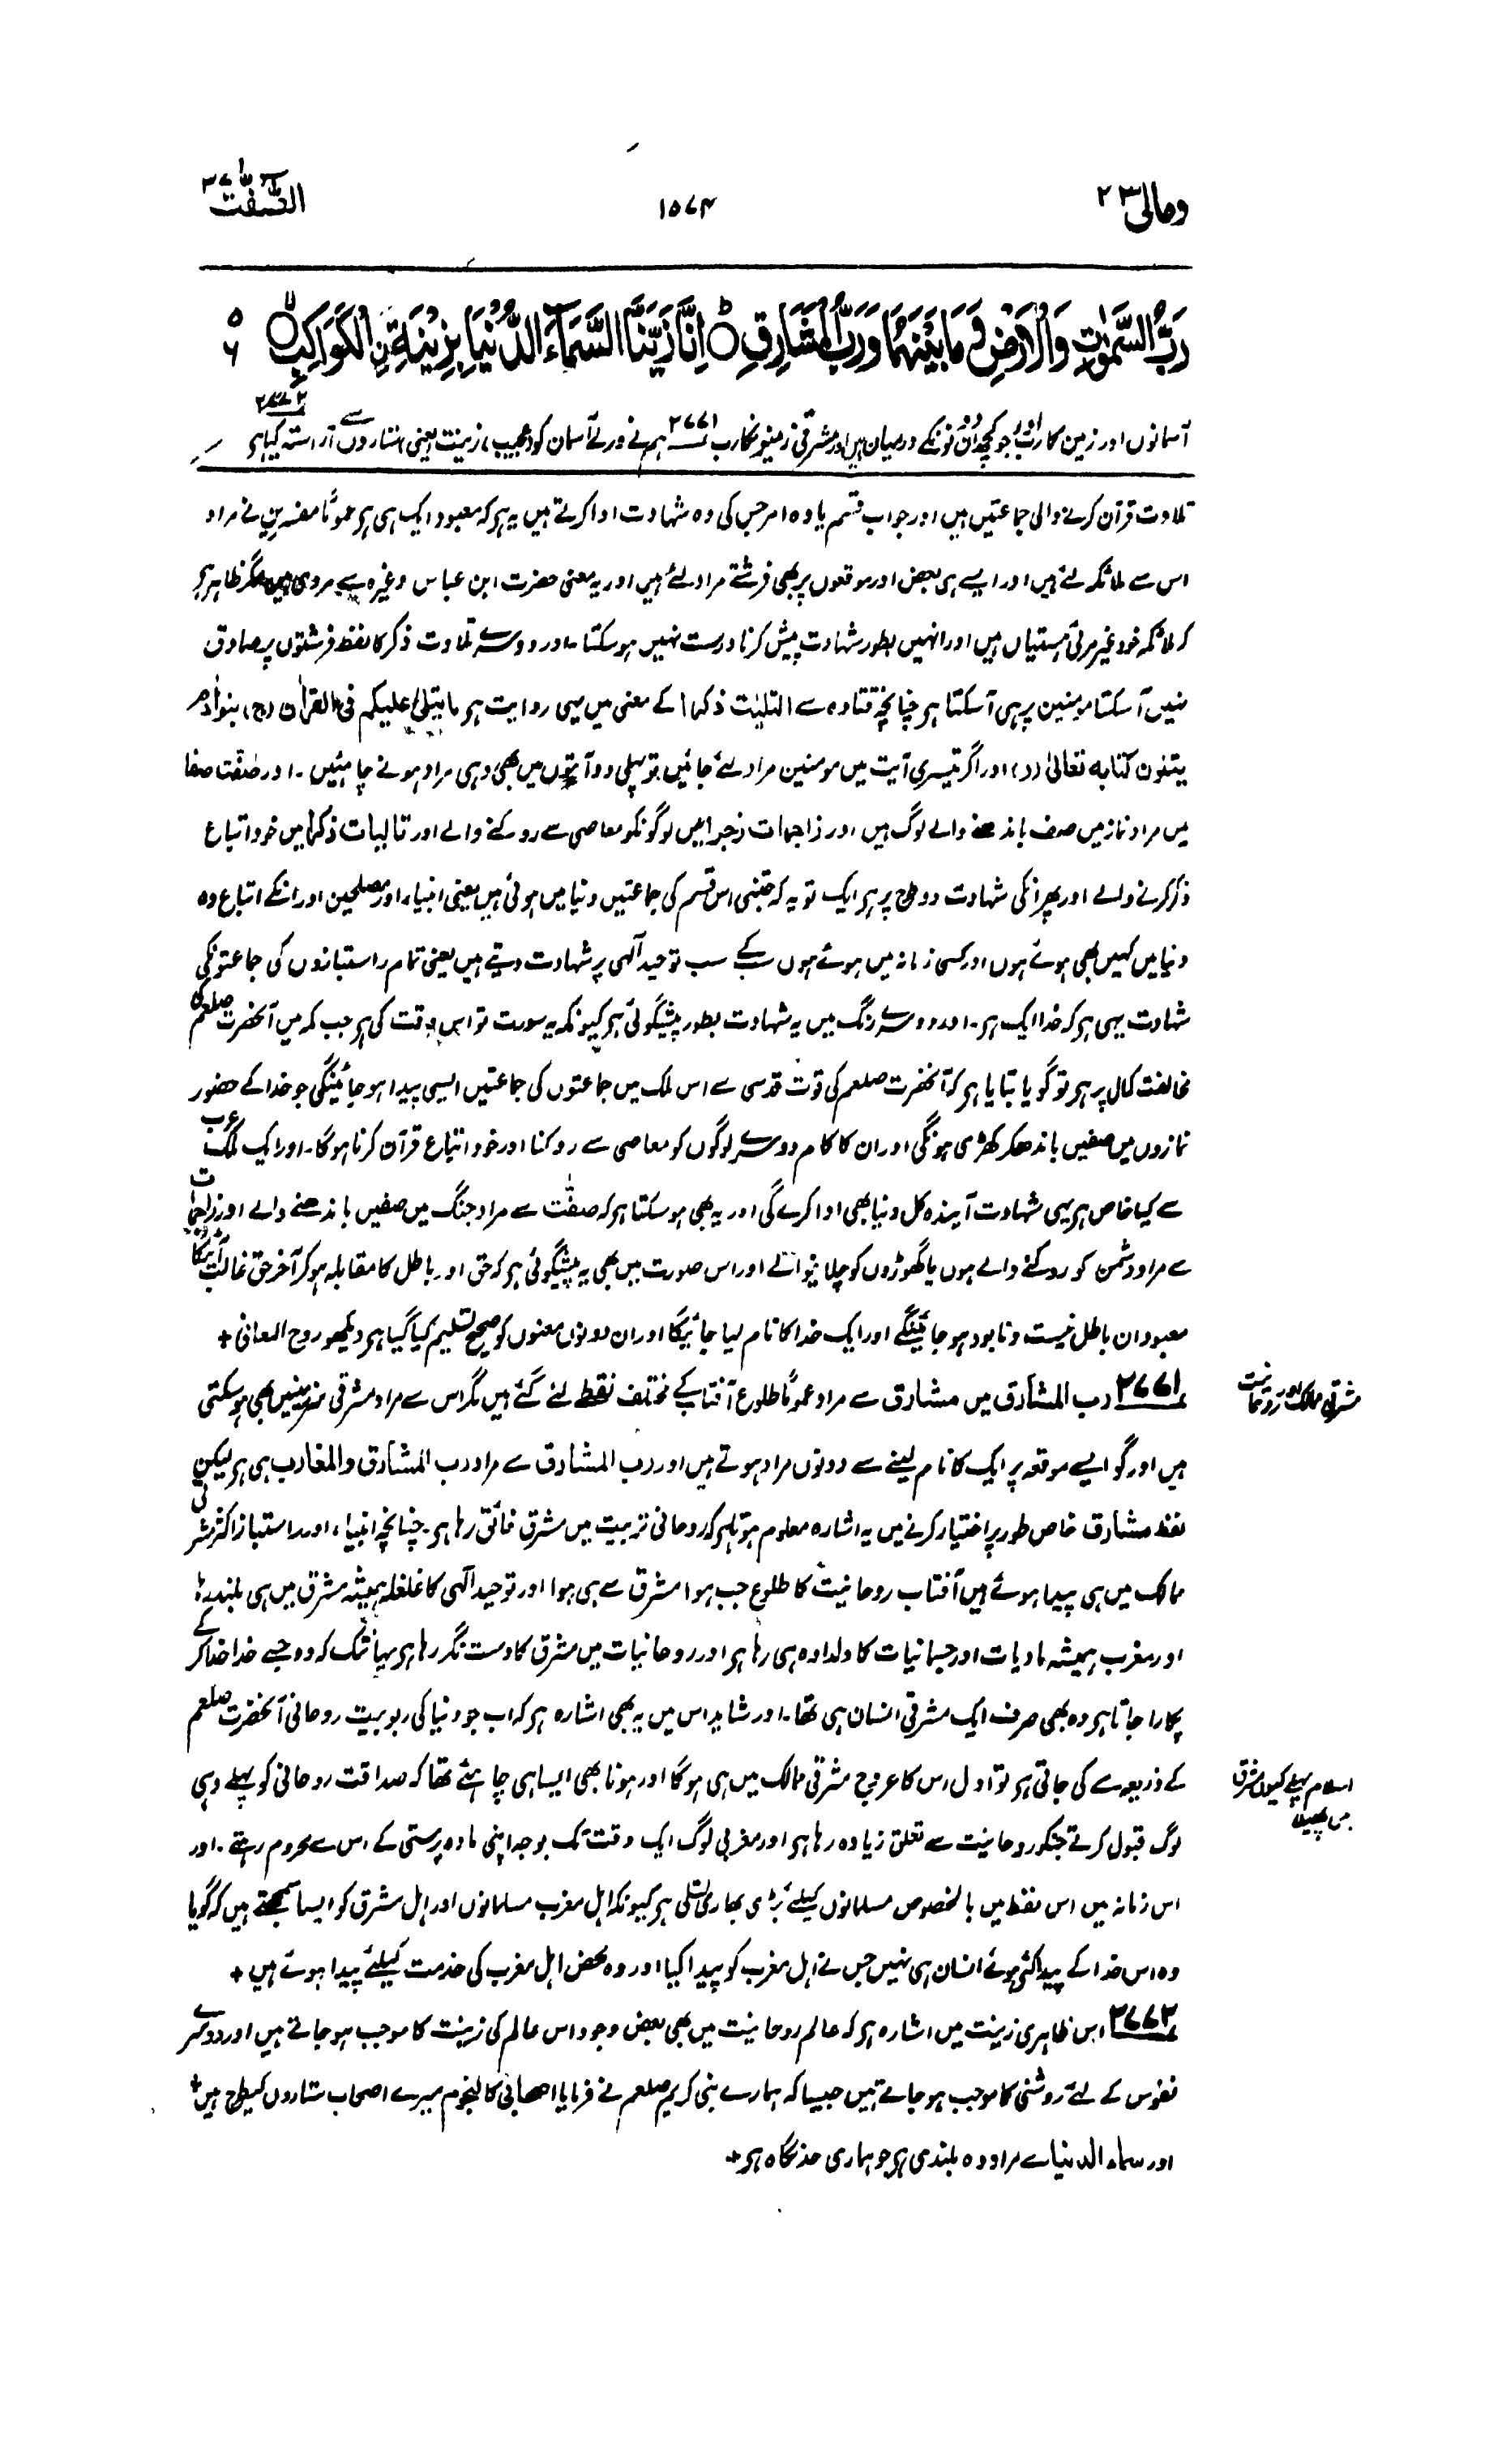 ومالی ۲۳
۱۵۷۴
الصّٰفّٰت ۳۷
رَبُّ السَّمٰوٰتِ وَالْاَرْضِ وَمَا بَيْنَهُمَا وَرَبُّ الْمَشَارِقِ ۝ اِنَّا زَيَّنَّا السَّمَآءَ الدُّنْيَا بِزِيْنَةِ ِۨالْكَوَاكِبِ ۝ ۵ ۶
آسمانوں اور زمین کا رب اور جو کچھ ان دونوں کے درمیان ہے اور مشرقی زمینوں کا رب ۲۷۷۱ ہم نے ورلے آسمان کو (عجیب) زینت یعنی ستاروں سے آراستہ کیا ہے ۲۷۷۲
تلاوت قرآن کرنے والی جماعتیں ہیں اور جواب قسم یا وہ امر جس کی وہ شہادت ادا کرتے ہیں یہ ہے کہ معبود ایک ہی ہے عموماً مفسرین نے مراد
اس سے ملائکہ لئے ہیں اور ایسے ہی بعض اور موقعوں پر بھی فرشتے مراد لئے ہیں اور یہ معنی حضرت ابن عباس وغیرہ سے مروی ہیں مگر ظاہر ہے
کہ ملائکہ خود غیر مرئی ہستیاں ہیں اور انہیں بطور شہادت پیش کرنا درست نہیں ہو سکتا ۔ اور دوسرے تلاوت ذکر کا لفظ فرشتوں پر صادق
نہیں آسکتا مومنین پر ہی آسکتا ہے چنانچہ قتادہ سے التلیٰت ذکرا کے معنی میں یہی روایت ہے ما یتلیٰ علیکم فی القراٰن (ج) بنو اٰدم
یتلون کتابه تعالیٰ (د) اور اگر تیسری آیت میں مومنین مراد لئے جائیں تو پہلی دو آیتوں میں بھی وہی مراد ہونے چاہئیں ۔ اور صٰفٰت صفا
میں مراد نماز میں صف باندھنے والے لوگ ہیں اور زاجرات زجرا میں لوگونکو معاصی سے روکنے والے اور تالیات ذکرا میں خود اتباع
ذکر کرنے والے اور پھر انکی شہادت دو طرح پر ہے ایک تو یہ کہ جتنی اس قسم کی جماعتیں دنیا میں ہوئی ہیں یعنی انبیاء اور مصلحین اور انکے اتباع وہ
دنیا میں کہیں بھی ہوئے ہوں اور کسی زمانہ میں ہوئے ہوں سب کے سب توحید الٰہی پر شہادت دیتے ہیں یعنی تمام راستبازوں کی جماعتونکی
شہادت یہی ہے کہ خدا ایک ہے ۔ اور دوسرے رنگ میں یہ شہادت بطور پیشگوئی ہے کیونکہ یہ سورت تو اس وقت کی ہے جب مکہ میں آنحضرت صلعم کی
مخالفت کمال پر ہے تو گویا بتایا ہے کہ آنحضرت صلعم کی قوت قدسی سے اس ملک میں جماعتوں کی جماعتیں ایسی پیدا ہو جائینگی جو خدا کے حضور
نمازوں میں صفیں باندھکر کھڑی ہونگی اور ان کا کام دوسرے لوگوں کو معاصی سے روکنا اور خود اتباع قرآن کرنا ہوگا ۔ اور ایک ملک عرب
سے کیا خاص ہے یہی شہادت آیندہ کل دنیا بھی ادا کرے گی اور یہ بھی ہو سکتا ہے کہ صفّٰت سے مراد جنگ میں صفیں باندھنے والے اور زاجرات
سے مراد دشمن کو روکنے والے ہوں یا گھوڑوں کو چلانیوالے اور اس صورت میں بھی یہ پیشگوئی ہے کہ حق اور باطل کا مقابلہ ہو کر آخر حق غالب آئیگا
معبودان باطل نیست و نابود ہو جائینگے اور ایک خدا کا نام لیا جائیگا اور ان دونوں معنوں کو صحیح تسلیم کیا گیا ہے دیکھو روح المعانی +
مشرقی ممالک اور روحانیت
۲۷۷۱ رب المشارق میں مشارق سے مراد عموماً طلوع آفتاب کے مختلف نقطے لئے گئے ہیں مگر اس سے مراد مشرقی سرزمینیں بھی ہو سکتی
ہیں اور گو ایسے موقعہ پر ایک کا نام لینے سے دونوں مراد ہوتے ہیں اور رب المشارق سے مراد رب المشارق والمغارب ہی ہے لیکن
لفظ مشارق خاص طور پر اختیار کرنے میں یہ اشارہ معلوم ہوتا ہے کہ روحانی تربیت میں مشرق فائق رہا ہے ۔ چنانچہ انبیاء اور راستباز اکثر مشرقی
ممالک میں ہی پیدا ہوئے ہیں آفتاب روحانیت کا طلوع جب ہوا مشرق سے ہی ہوا اور توحید الٰہی کا غلغلہ ہمیشہ مشرق میں ہی بلند رہا
اور مغرب ہمیشہ مادیات اور جسمانیات کا دلدادہ ہی رہا ہے اور روحانیات میں مشرق کا دست نگر رہا ہے یہانتک کہ وہ جسے خدا خدا کر کے
پکارا جاتا ہے وہ بھی صرف ایک مشرقی انسان ہی تھا ۔ اور شاید اس میں یہ بھی اشارہ ہے کہ اب جو دنیا کی ربوبیت روحانی آنحضرت صلعم
اسلام پہلے کیوں مشرق میں پھیلا
کے ذریعہ سے کی جاتی ہے تو اول اس کا عروج مشرقی ممالک میں ہی ہوگا اور ہونا بھی ایسا ہی چاہئے تھا کہ صداقت روحانی کو پہلے وہی
لوگ قبول کرتے جنکو روحانیت سے تعلق زیادہ رہا ہے اور مغربی لوگ ایک وقت تک بوجہ اپنی مادہ پرستی کے اس سے محروم رہتے ۔ اور
اس زمانہ میں اس لفظ میں بالخصوص مسلمانوں کیلئے بڑی بھاری تسلی ہے کیونکہ اہل مغرب مسلمانوں اور اہل مشرق کو ایسا سمجھتے ہیں کہ گویا
وہ اس خدا کے پیدا کئے ہوئے انسان ہی نہیں جس نے اہل مغرب کو پیدا کیا اور وہ محض اہل مغرب کی خدمت کیلئے پیدا ہوئے ہیں +
۲۷۷۲ اس ظاہری زینت میں اشارہ ہے کہ عالم روحانیت میں بھی بعض وجود اس عالم کی زینت کا موجب ہو جاتے ہیں اور دوسرے
نفوس کے لئے روشنی کا موجب ہو جاتے ہیں جیسا کہ ہمارے نبی کریم صلعم نے فرمایا اصحابی کالنجوم میرے اصحاب ستاروں کیطرح ہیں +
اور سماء الدنیا سے مراد وہ بلندی ہے جو ہماری حد نگاہ ہے +